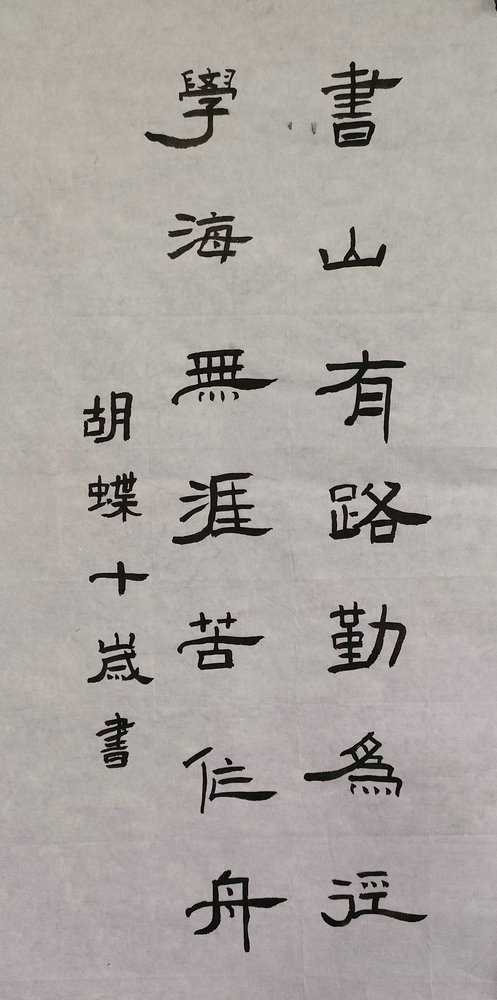 書山有路勤為徑
學海無涯苦作舟
胡蝶十歲書